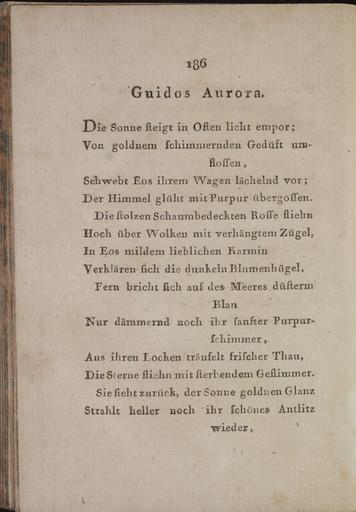 186
Guidos Aurora.
Die Sonne ſteigt in Oſten licht empor;
Von goldnem ſchimmernden Gedüft um-
floſſen,
Schwebt Eos ihrem Wagen lächelnd vor;
Der Himmel glüht mit Purpur übergoſſen.
Die ſtolzen Schaumbedeckten Roſſe fliehn
Hoch über Wolken mit verhängtem Zügel,
In Eos mildem lieblichen Karmin
Verklären ſich die dunkeln Blumenhügel,
Fern bricht ſich auf des Meeres düſterm
Blau
Nur dämmernd noch ihr ſanfter Purpur-
ſchimmer,
Aus ihren Locken träufelt friſcher Thau,
Die Sterne fliehn mit ſterbendem Geflimmer.
Sie ſieht zurück, der Sonne goldnen Glanz
Strahlt heller noch ihr ſchönes Antlitz
wieder,